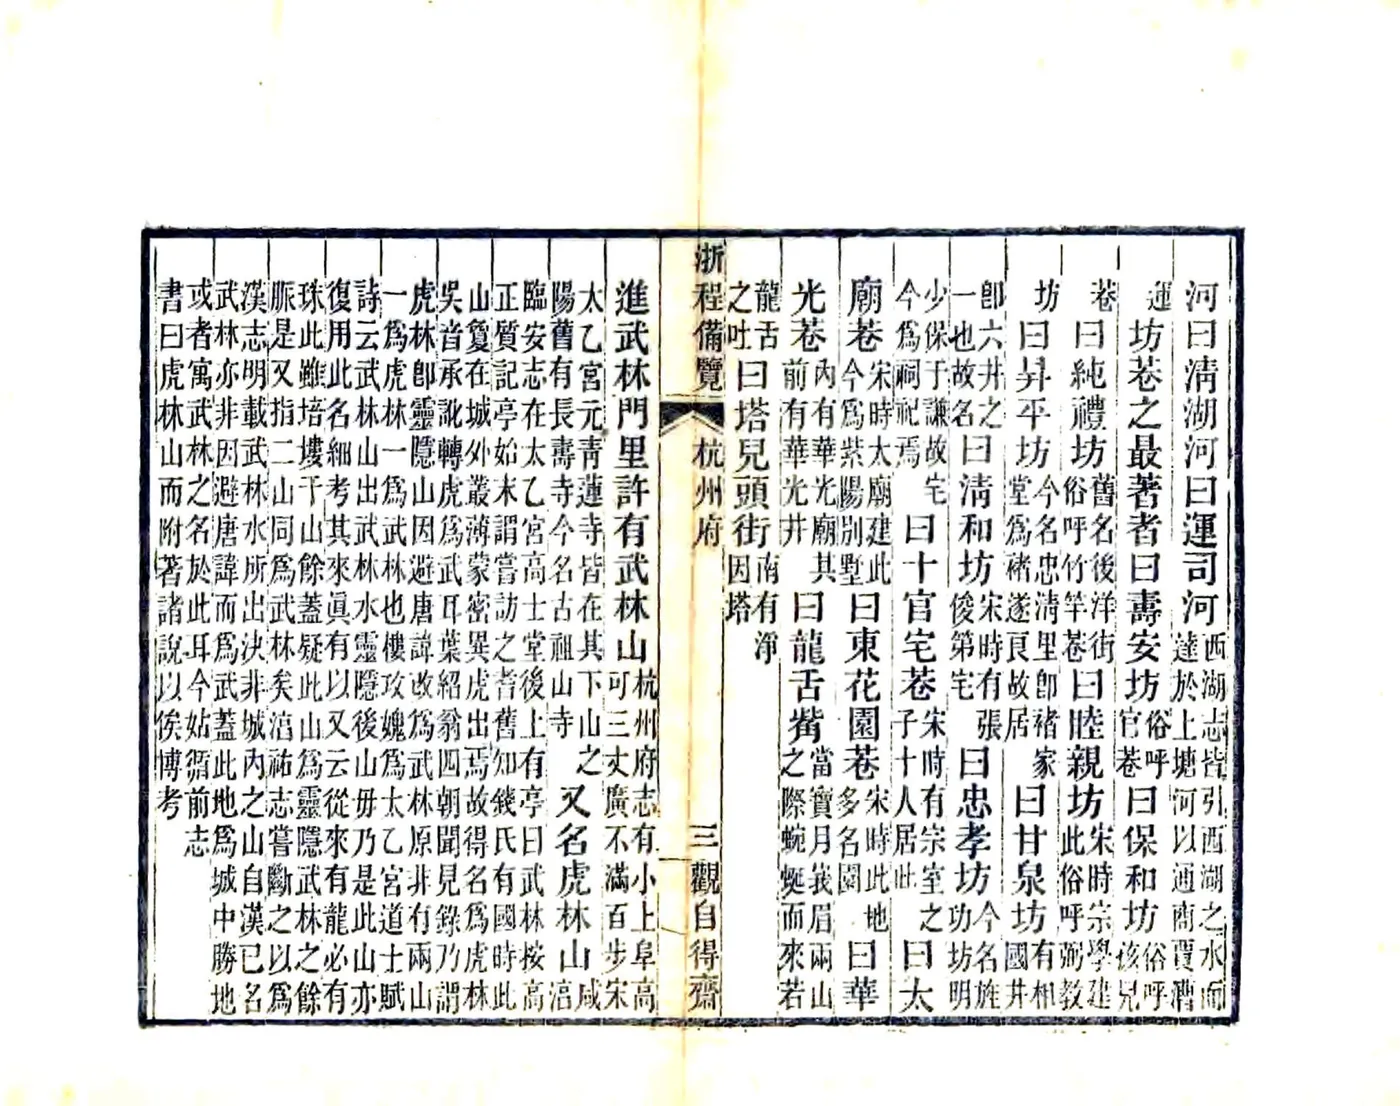 河曰淸湖河曰運司河西湖志皆引西湖之水而達於上塘河以通商賈漕
運坊巷之最著者曰壽安坊俗呼官巷曰保和坊俗呼該兒
巷曰純禮坊舊名後洋街俗呼竹竿巷曰睦親坊宋時宗學建此俗呼弼教
坊曰昇平坊今名忠淸里卽褚家堂爲褚遂良故居曰甘泉坊有相國井
卽六井之一也故名曰淸和坊宋時有張俊第宅曰忠孝坊今名旌功坊明
少保于謙故宅今爲祠祀焉曰十官宅巷宋時有宗室之子十人居此曰太
廟巷宋時太廟建此今爲紫陽別墅曰東花園巷宋時此地多名園曰華
光巷內有華光廟其前有華光井曰龍舌觜當寶月莪眉兩山之際蜿蜒而來若
龍舌之吐曰塔兒頭街南有淨因塔
浙程備覽 杭州府 三 觀自得齋
進武林門里許有武林山杭州府志有小上阜高可三丈廣不滿百步宋
太乙宮元靑蓮寺皆在其下山之陽舊有長壽寺今名古祖山寺又名虎林山咸淳
臨安志在太乙宮高士堂後上有亭曰武林按高正質記亭始末謂嘗訪之耆舊知錢氏有國時此
山簒在城外叢薄蒙密異虎出焉故得名爲虎林吳音承訛轉虎爲武耳葉紹翁四朝聞見錄乃謂
虎林卽靈隱山因避唐諱改爲武林原非有兩山一爲虎林一爲武林也樓攻媿爲太乙宮道士賦
詩云武林山出武林水靈隱後山毋乃是此山亦復用此名細考其來眞有以又云從來有龍必有
珠此雖培塿于山餘蓋疑此山爲靈隱武林之餘脈是又指二山同爲武林矣淳祐志嘗斷之以爲
漢志明載武林水所出決非城內之山自漢已名武林亦非因避唐諱而爲武蓋此地爲城中勝地
或者寓武林之名於此耳今姑循前志書曰虎林山而附著諸說以俟博考